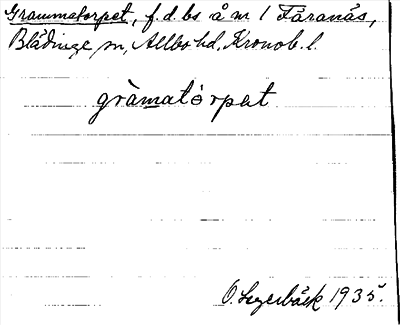 Grammatorpet, f.d. bs å m 1 Fåranäs,
Blädinge sn, Allbo hd, Kronob. l.
gràmatòrpet
O. Segerbäck 1935.